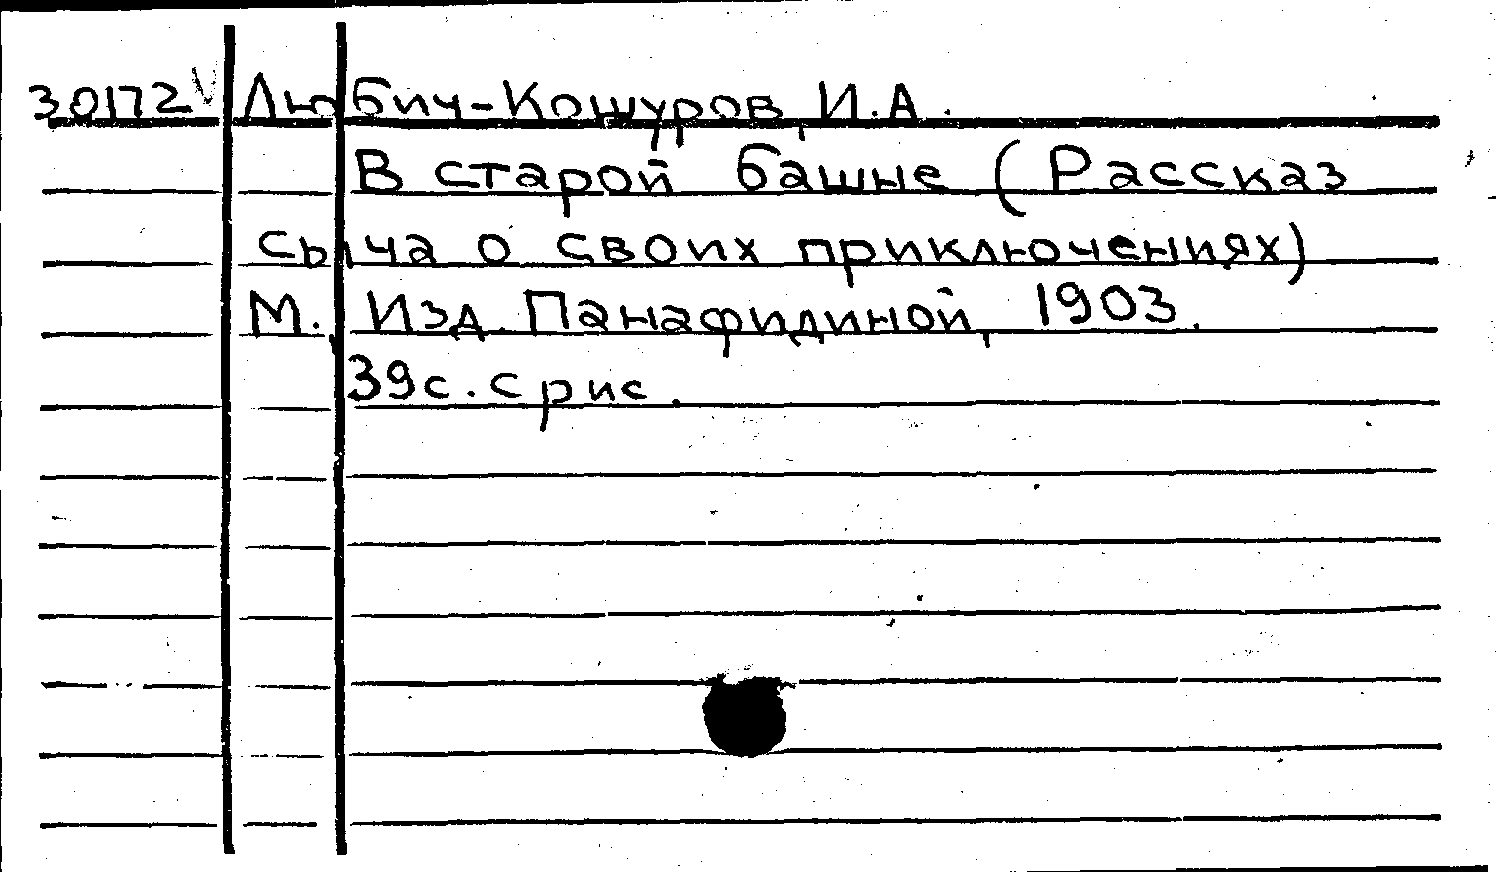 30172 Любич-Кошуров, И.А.
В старой башне (Рассказ
сыча о своих приключениях)
М., Изд. Панафидиной, 1903.
39с. с рис.